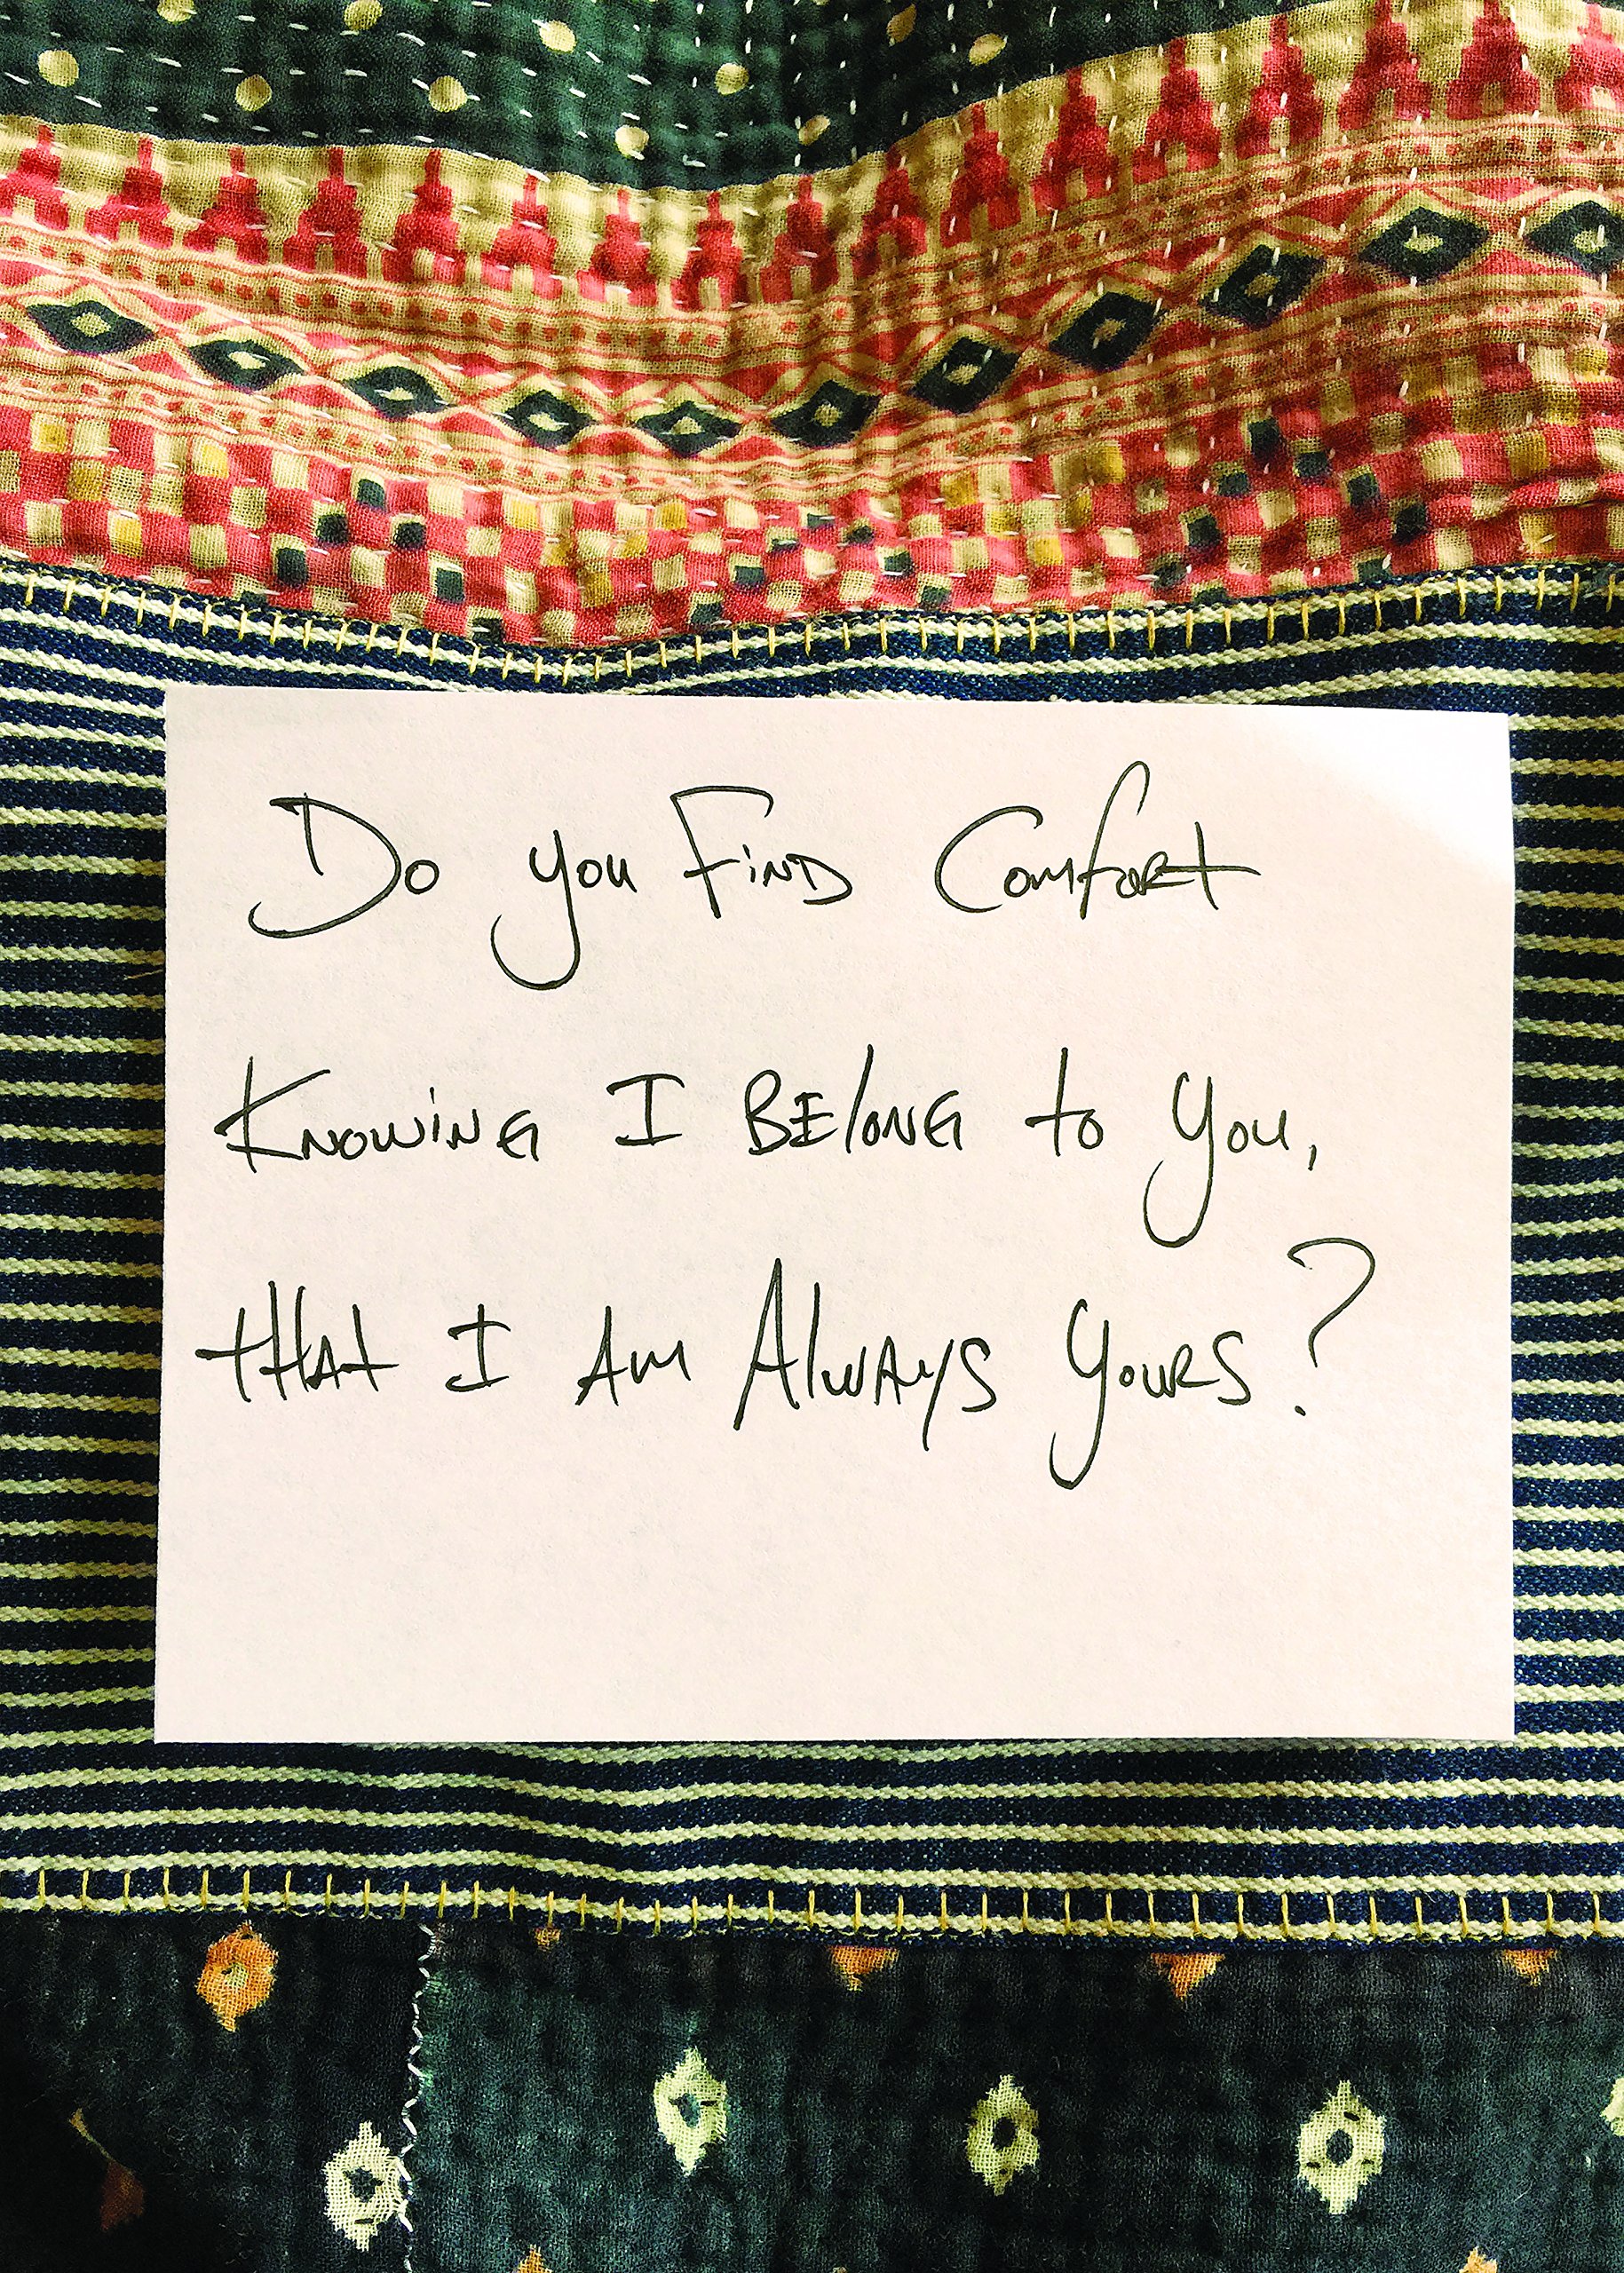 Do you Find Comfort
Knowing I Belong to you,
that I Am Always yours?